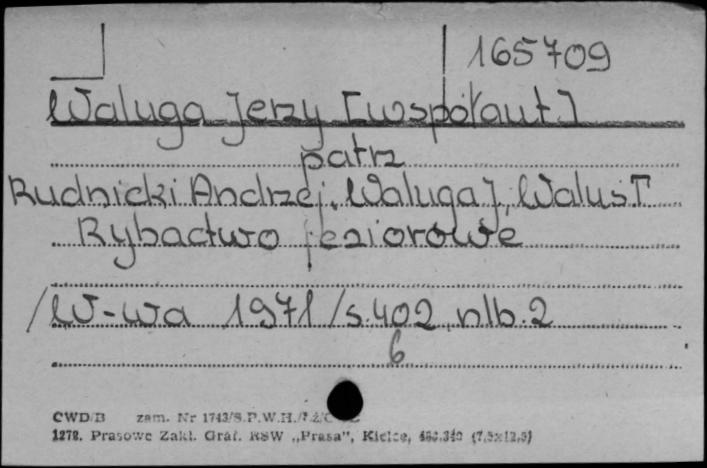 165709
Waluga Jerzy [współaut]
patrz
Rudnicki Andrzej, Waluga J, Waluś T
Rybactwo jeziorowe
/W-wa 1971/s.402, nlb.2
6
CWD/B zam. Nr 1743/S.P.W.H.
1278. Prasowe Zakł. Graf. RSW „Prasa”, Kielce, (7,5x12,5)